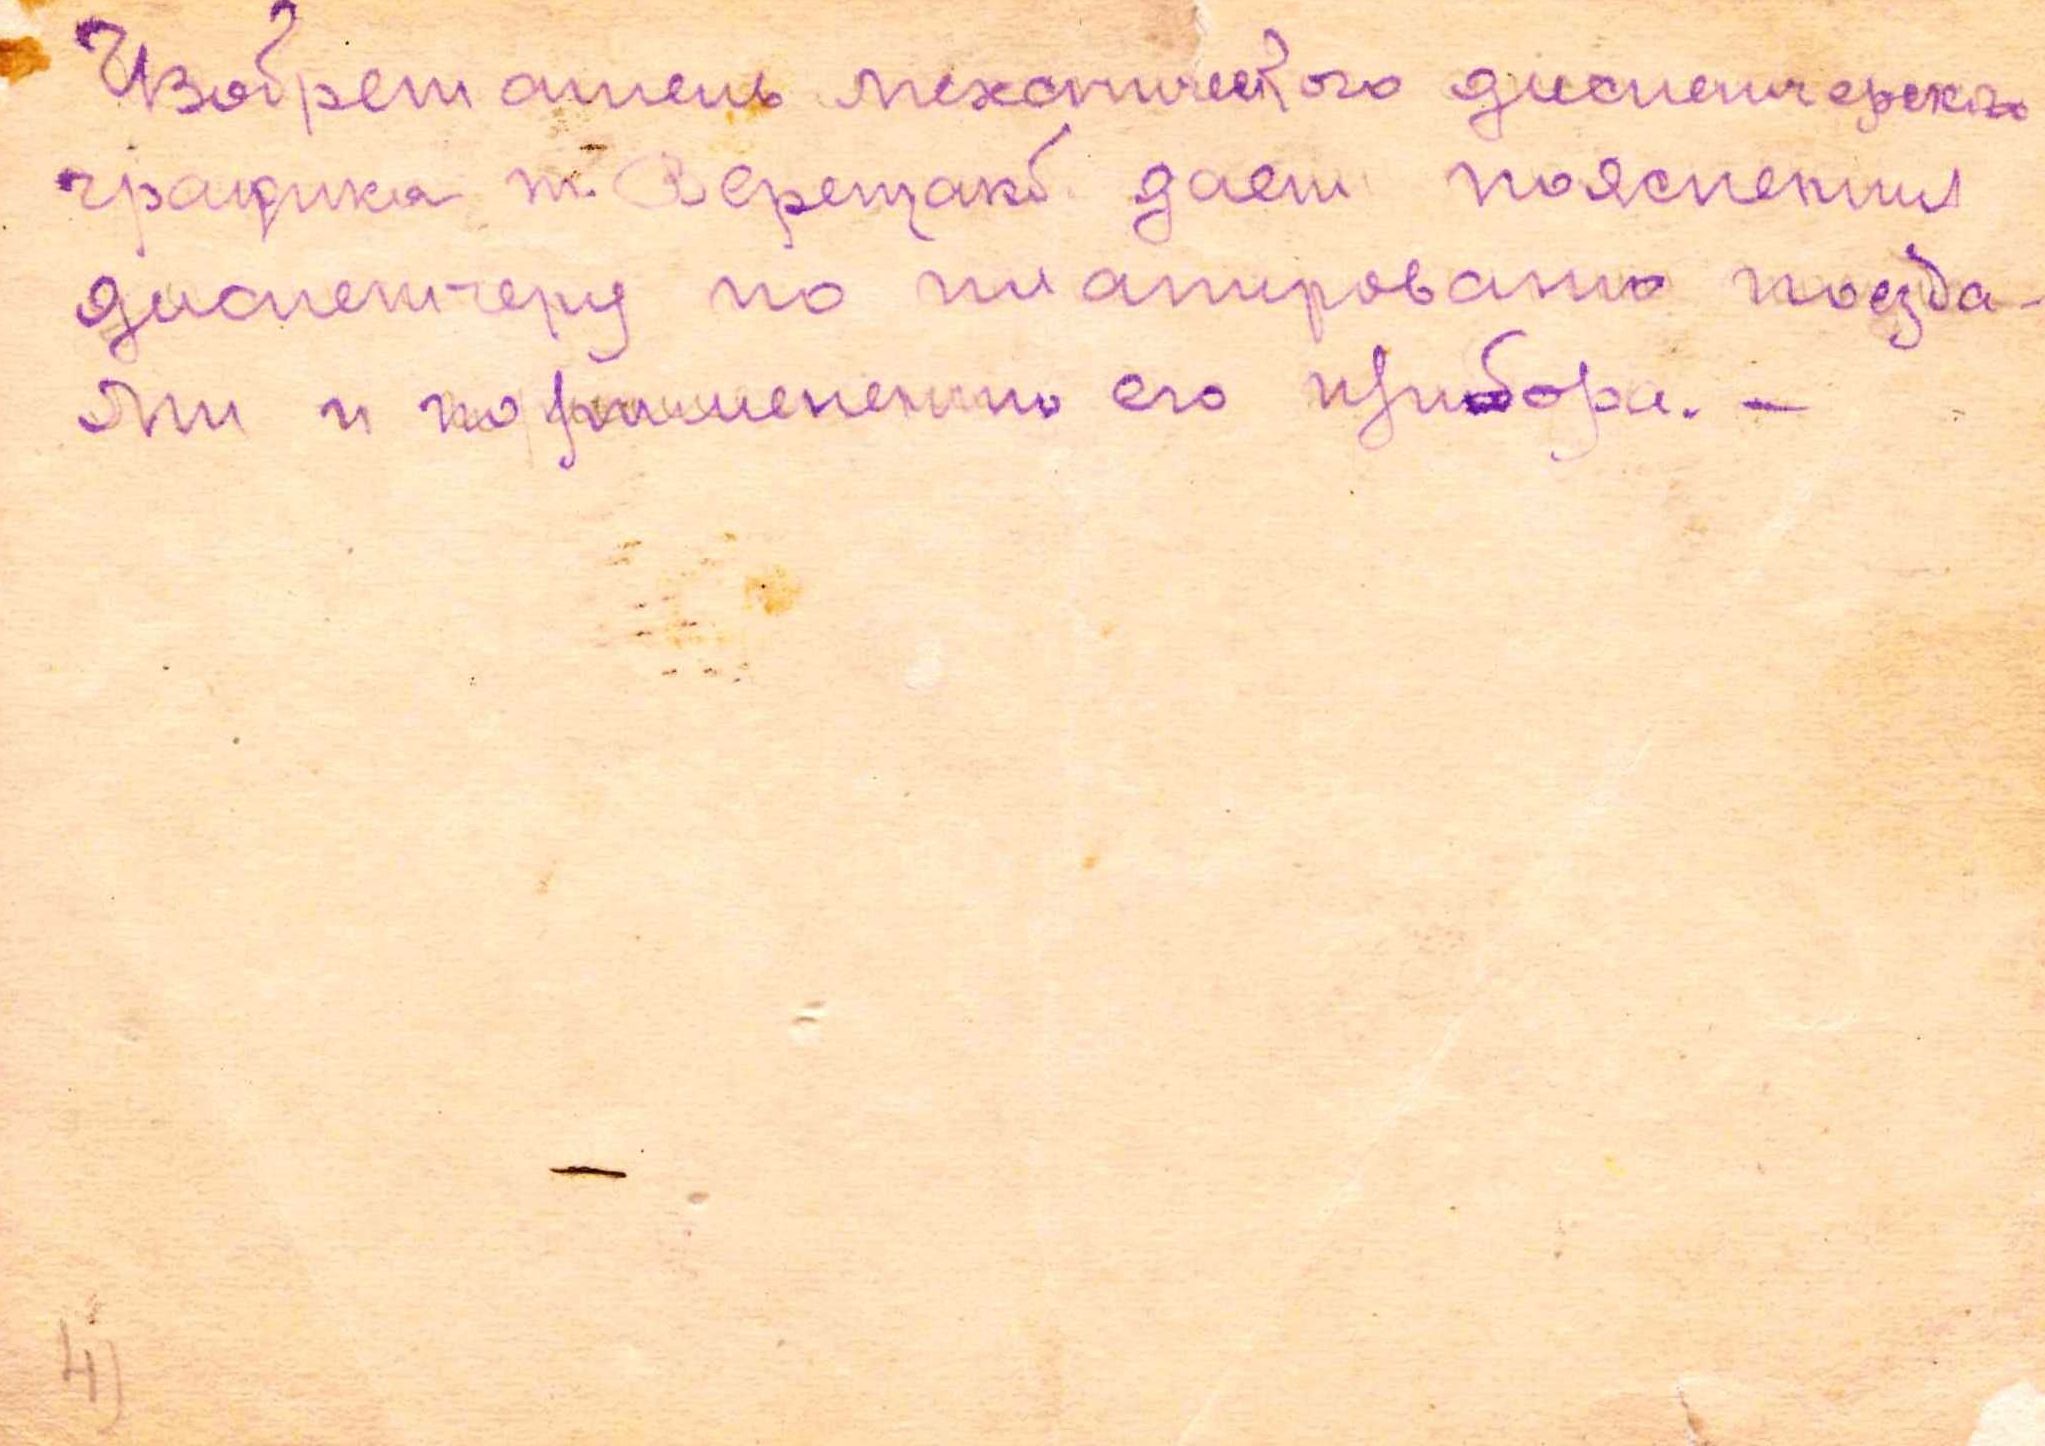 Изобретатель механического диспетчерского
графика т. Верещак дает пояснения
диспетчеру по планированию поезда-
ми и по применению его прибора. —
4)